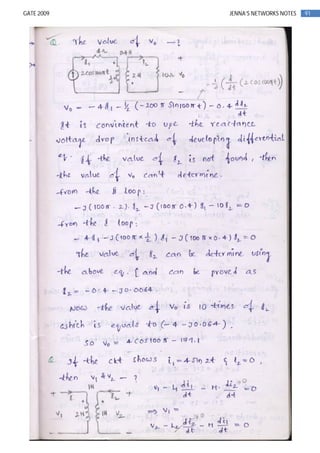 GATE 2009 JENNA'S NETWORKS NOTES 91
Q. The value of V₀ — ?
4Ω 0.4H
i₁ i₂
2cos100πt 2H 10Ω V₀
-½ (d/dt (2cos100πt))
V₀ = -4i₁ - ½ (-200π sin100πt) - 0.4 di₂/dt
It is convinient to use the reactance
voltage drop instead of developing differential
eq. If the value of i₂ is not found, then
the value of V₀ can't determine.
from the II loop:
-J(100π·2)·i₂ - J(100π 0.4) i₁ - 10i₂ = 0
from the I loop:
-4i₁ - J(100π×½) i₁ - J(100π×0.4) i₂ = 0
The value of i₂ can be determine using
the above eq. [and can be proved as
i₂ = -0.4 - J0.0064
Now the value of V₀ is 10 times of i₂
which is equals to (-4 - J0.064).
So V₀ = 4cos100π - 179.1
Q. If the ckt shows i₁ = 4sin2t & i₂ = 0,
then V₁ & V₂ - ?
1H
+ i₁ i₂ +
V₁ 2H 1H V₂
- -
V₁ - L₁ di₁/dt - M. di₂/dt = 0
⇒ V₁ =
V₂ - L₂ di₂/dt - M di₁/dt = 0